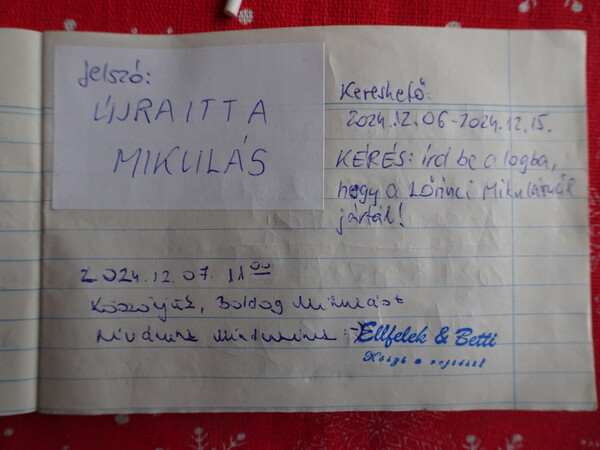 Jelszó:
ÚJRA ITT A
MIKULÁS
Kereshető:
2024.12.06-2024.12.15.
KÉRÉS: írd be a logba,
hogy a Lőrinci Mikulásnál
jártál!
2024.12.07. 1100
Köszönjük, Boldog Mikulást
kívánunk mindenkinek :-)
Ellfelek & Betti
Köszi a rejtést